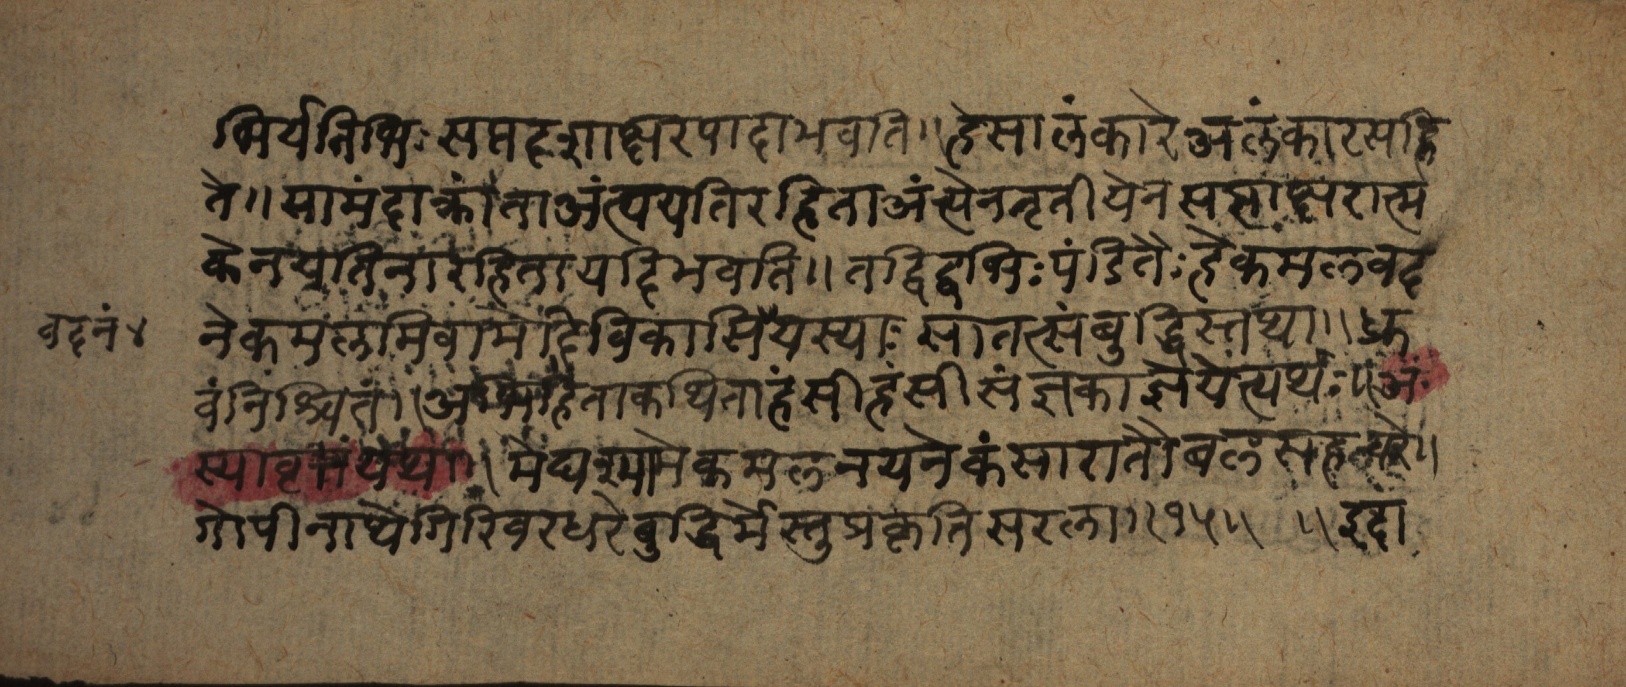 भिर्यतिभिः सप्तदशाक्षरपादाभवति॥ हेसालंकारे अलंकारसहि
ते॥ सामंदाक्रांता अंत्ययतिरहिता अंत्येनतृतीयेन सप्ताक्षरात्म
केनयतिनारहितायदिभवति॥ तद्विद्वद्भिः पंडितैः हेकमलवद
वदनं४
नेकमलमिवामदविकासियस्याः सातत्संबुद्धिस्तथा॥ ध्रु
वंनिश्चितं॥ अभिहिताकथिताहंसीहंसीसंज्ञकाज्ञेयेत्यर्थः॥ अ
स्यावृत्तंयथा॥ मेघश्यामेकमलनयनेकंसारातौबलसहचरे॥
गोपीनाथेगिरिवरधरेबुद्धिर्मेस्तुप्रकृतिसरला॥१५॥ ॥इदा